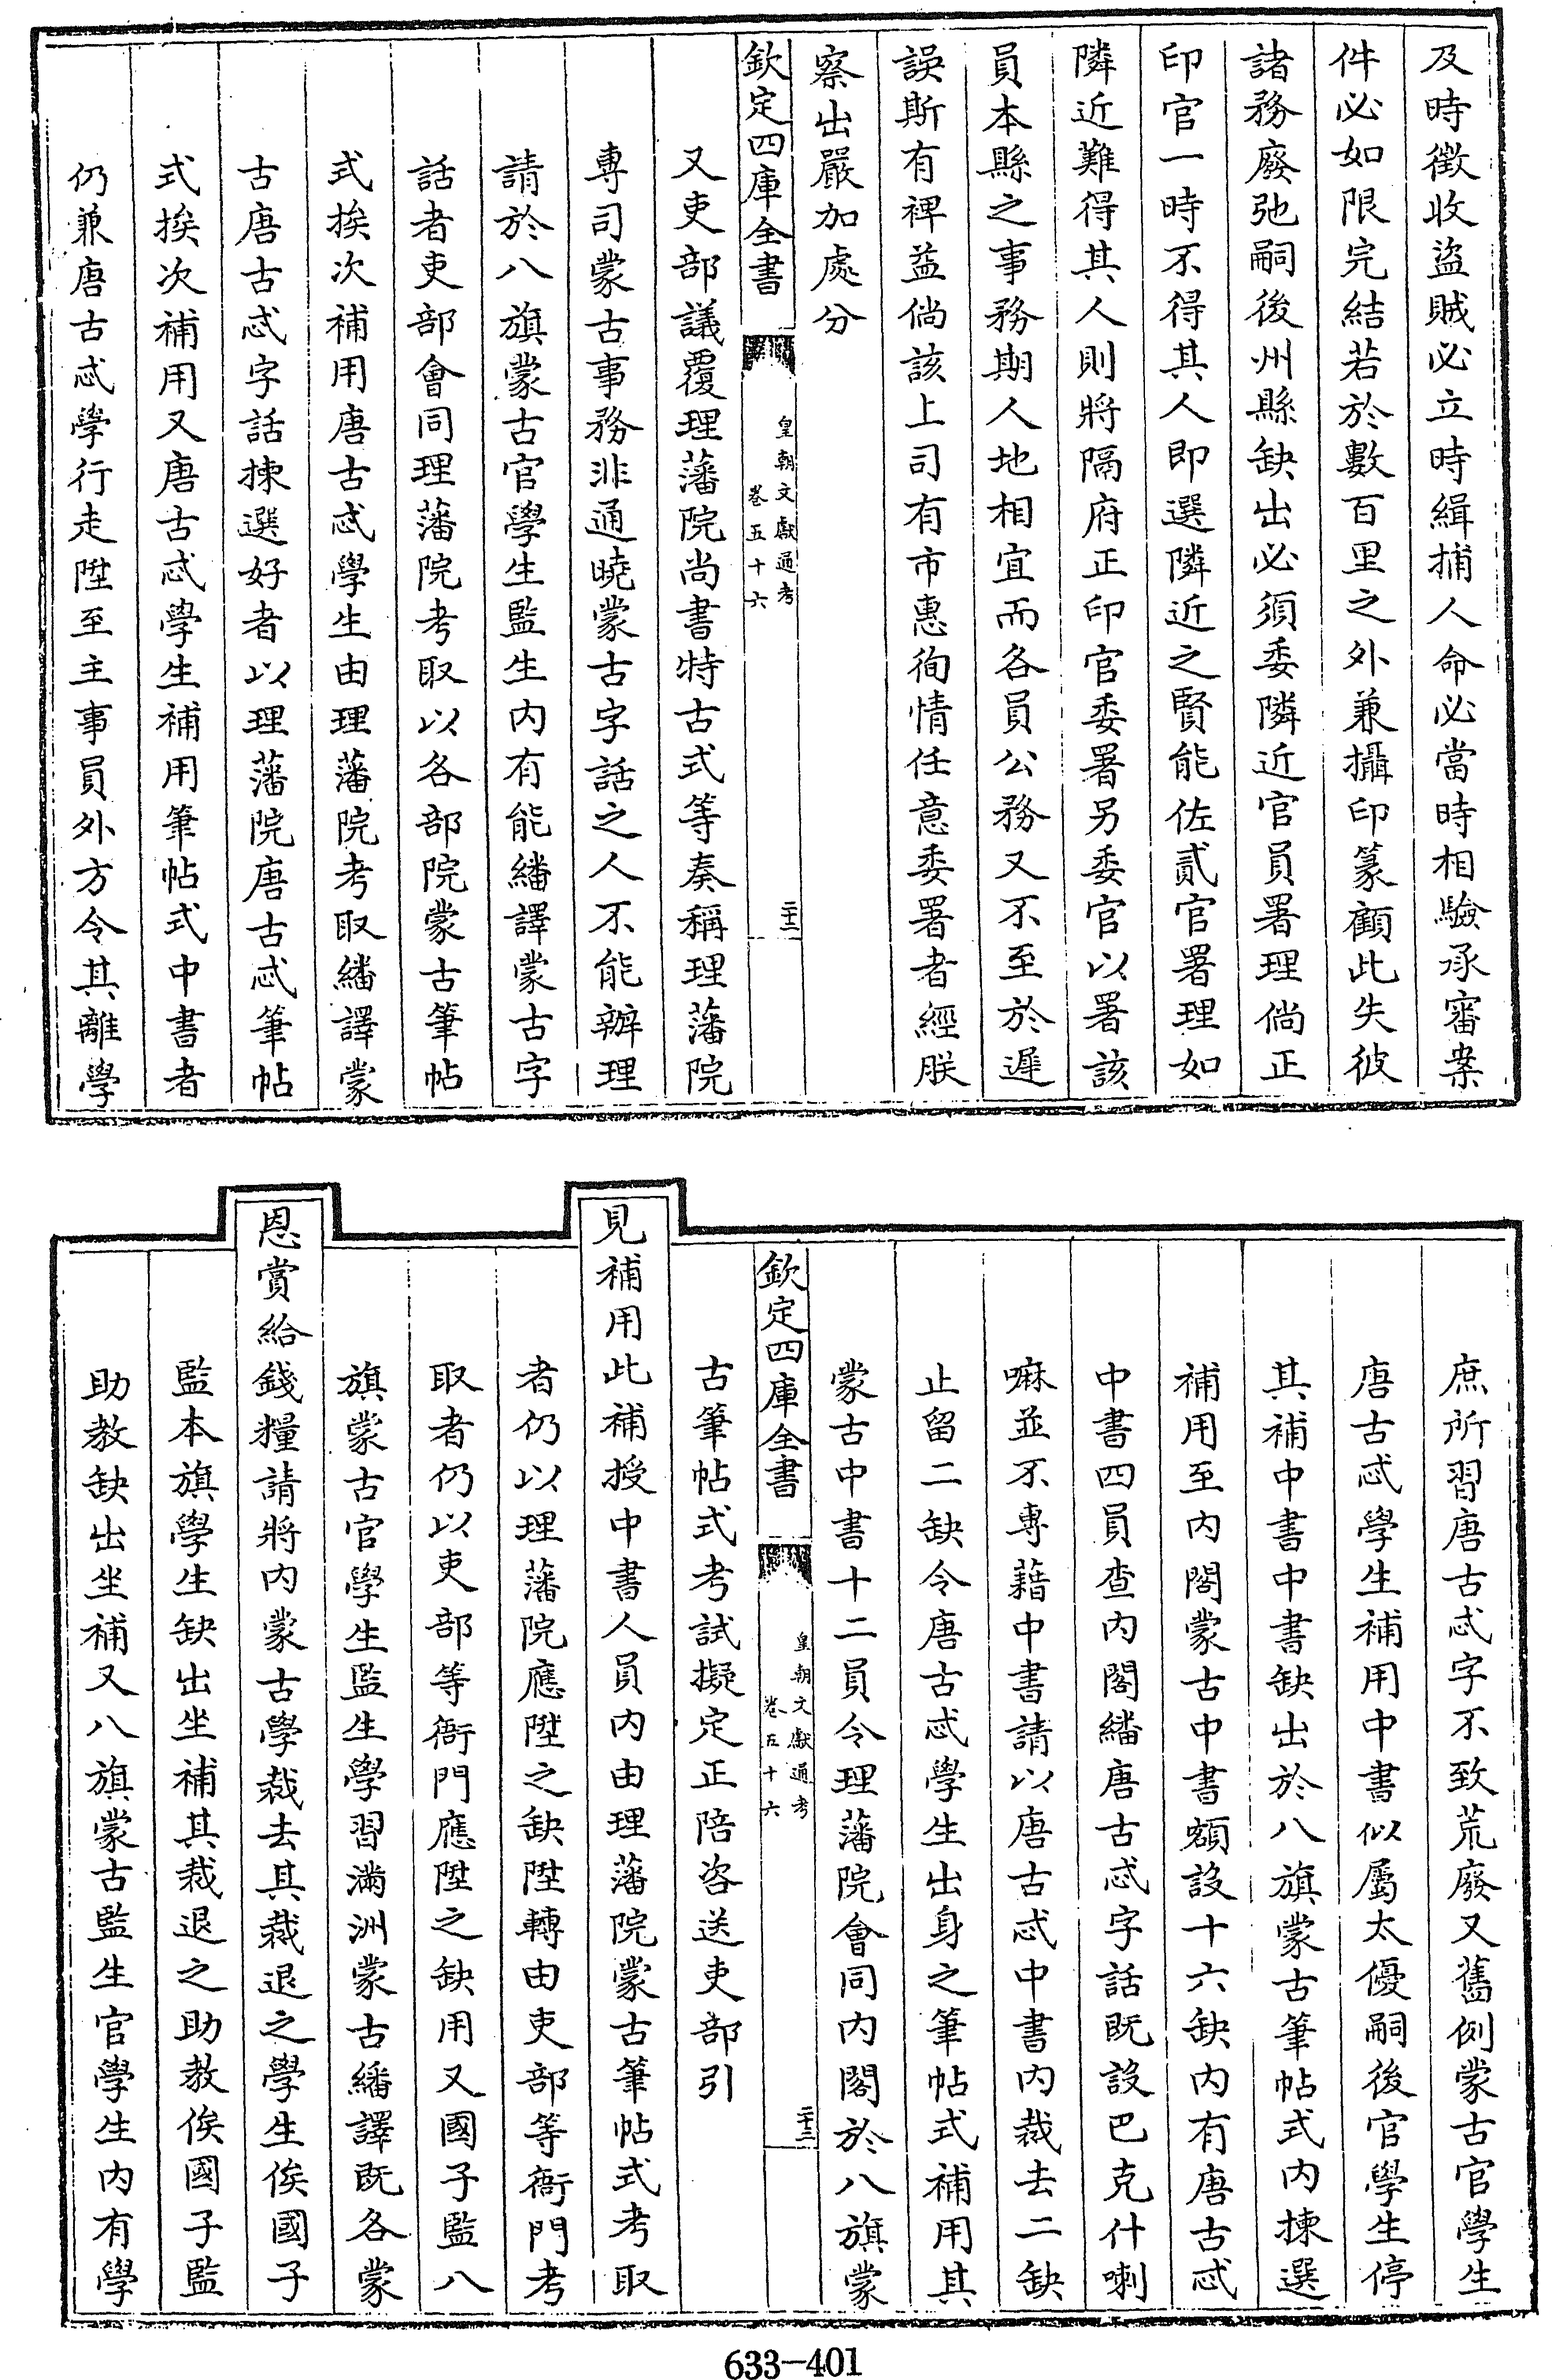 及時徵收盜賊必立時緝捕人命必當時相驗承審案
件必如限完結若於數百里之外兼攝印篆顧此失彼
諸務廢弛嗣後州縣缺出必須委隣近官員署理倘正
印官一時不得其人即選隣近之賢能佐貳官署理如
隣近難得其人則將隔府正印官委署另委官以署該
員本縣之事務期人地相宜而各員公務又不至於遲
誤斯有裨益倘該上司有市惠徇情任意委署者經朕
察出嚴加處分
欽定四庫全書
皇朝文獻通考
卷五十六
二十三
又吏部議覆理藩院尚書特古忒等奏稱理藩院
專司蒙古事務非通曉蒙古字話之人不能辦理
請於八旗蒙古官學生監生內有能繙譯蒙古字
話者吏部會同理藩院考取以各部院蒙古筆帖
式挨次補用唐古忒學生由理藩院考取繙譯蒙
古唐古忒字話揀選好者以理藩院唐古忒筆帖
式挨次補用又唐古忒學生補用筆帖式中書者
仍兼唐古忒學行走陞至主事員外方令其離學
庶所習唐古忒字不致荒廢又舊例蒙古官學生
唐古忒學生補用中書似屬太優嗣後官學生停
其補中書中書缺出於八旗蒙古筆帖式內揀選
補用至內閣蒙古中書額設十六缺內有唐古忒
中書四員查內閣繙唐古忒字話既設巴克什喇
嘛並不專藉中書請以唐古忒中書內裁去二缺
止留二缺令唐古忒學生出身之筆帖式補用其
蒙古中書十二員令理藩院會同內閣於八旗蒙
欽定四庫全書
皇朝文獻通考
卷五十六
二十三
古筆帖式考試擬定正陪咨送吏部引
見補用此補授中書人員內由理藩院蒙古筆帖式考取
者仍以理藩院應陞之缺陞轉由吏部等衙門考
取者仍以吏部等衙門應陞之缺用又國子監八
旗蒙古官學生監生學習滿洲蒙古繙譯既各蒙
恩賞給錢糧請將內蒙古學裁去其裁退之學生俟國子
監本旗學生缺出坐補其裁退之助教俟國子監
助教缺出坐補又八旗蒙古監生官學生內有學
633-401